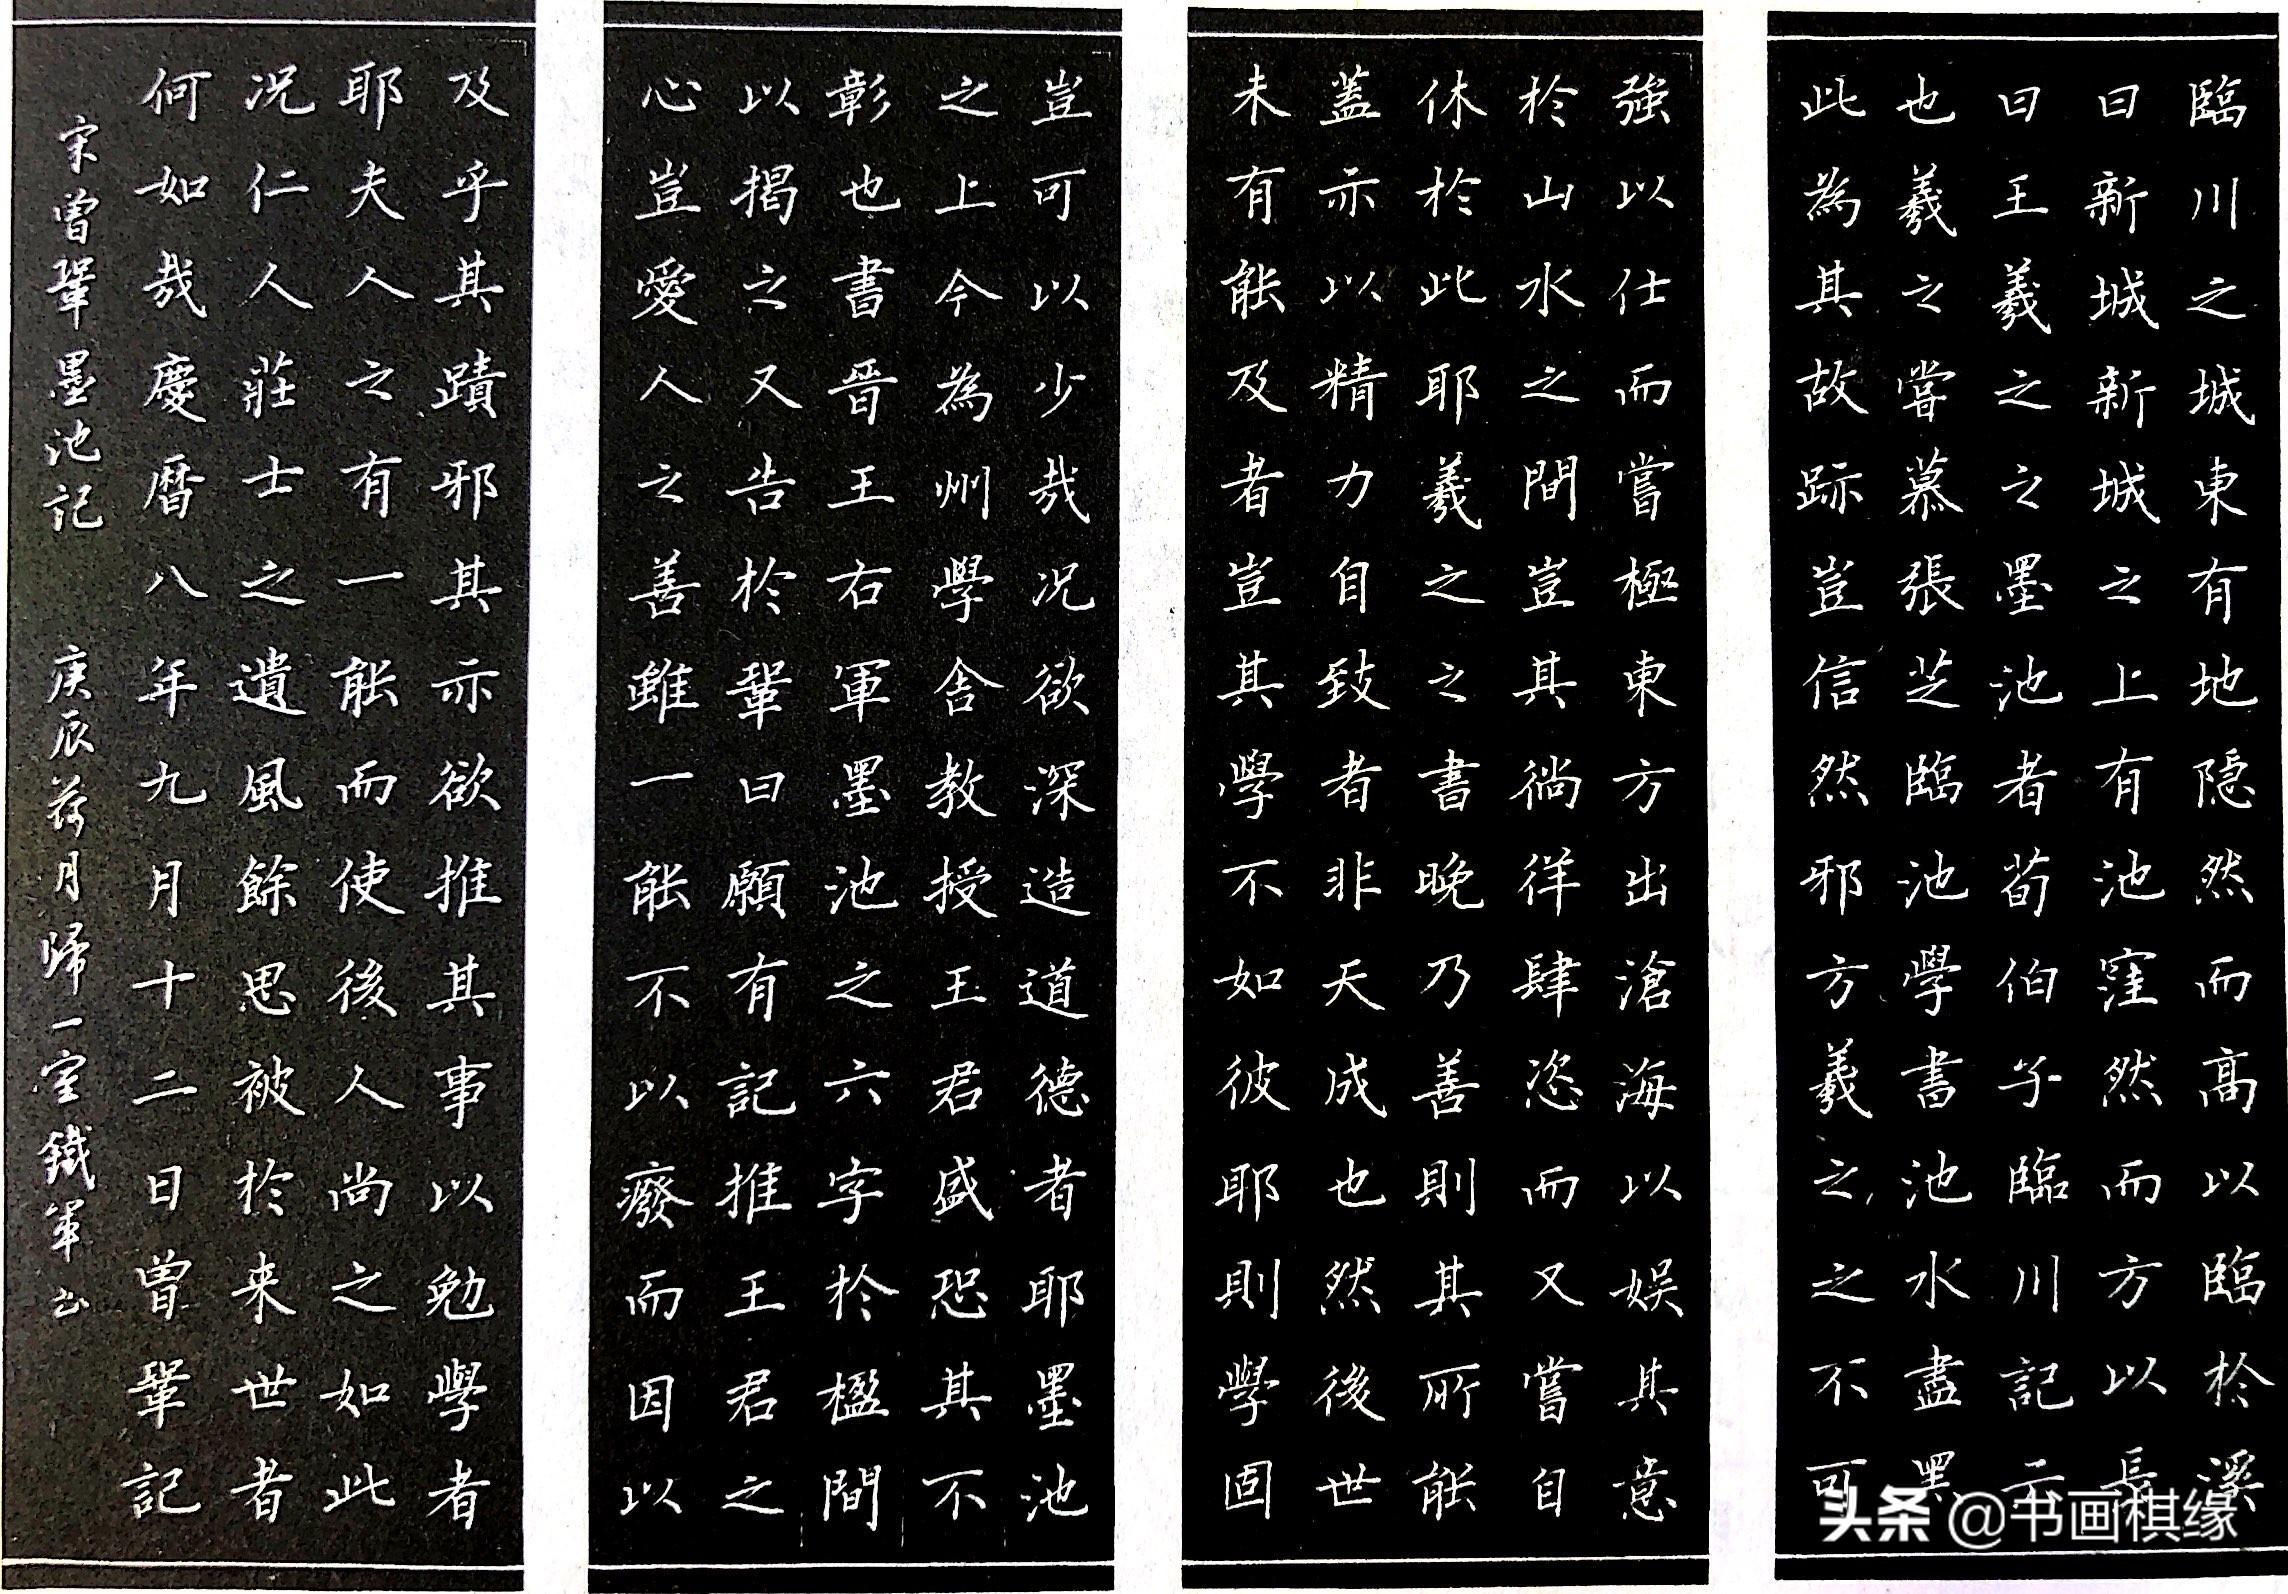 臨川之城東有地隐然而高以臨於溪
曰新城新城之上有池窪然而方以長
曰王羲之之墨池者荀伯子臨川記云
也羲之嘗慕張芝臨池學書池水盡黑
此為其故跡豈信然邪方羲之之不可
強以仕而嘗極東方出滄海以娱其意
於山水之間豈其徜徉肆恣而又嘗自
休於此耶羲之之書晚乃善則其所能
蓋亦以精力自致者非天成也然後世
未有能及者豈其學不如彼耶則學固
豈可以少哉况欲深造道德者耶墨池
之上今為州學舍教授王君盛恐其不
彰也書晉王右軍墨池之六字於楹間
以揭之又告於鞏曰願有記推王君之
心豈愛人之善雖一能不以廢而因以
及乎其蹟邪其亦欲推其事以勉學者
耶夫人之有一能而使後人尚之如此
况仁人莊士之遺風餘思被於来世者
何如哉慶曆八年九月十二日曾鞏記
宋曾鞏墨池記 庚辰荷月歸一室鐵軍书
头条 @书画棋缘